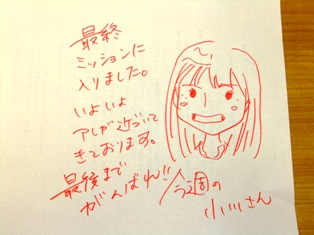 最終
ミッションに
入りました。
いよいよ
アレが近づいて
きております。
最後まで
がんばれ!!
今週の
小川さん